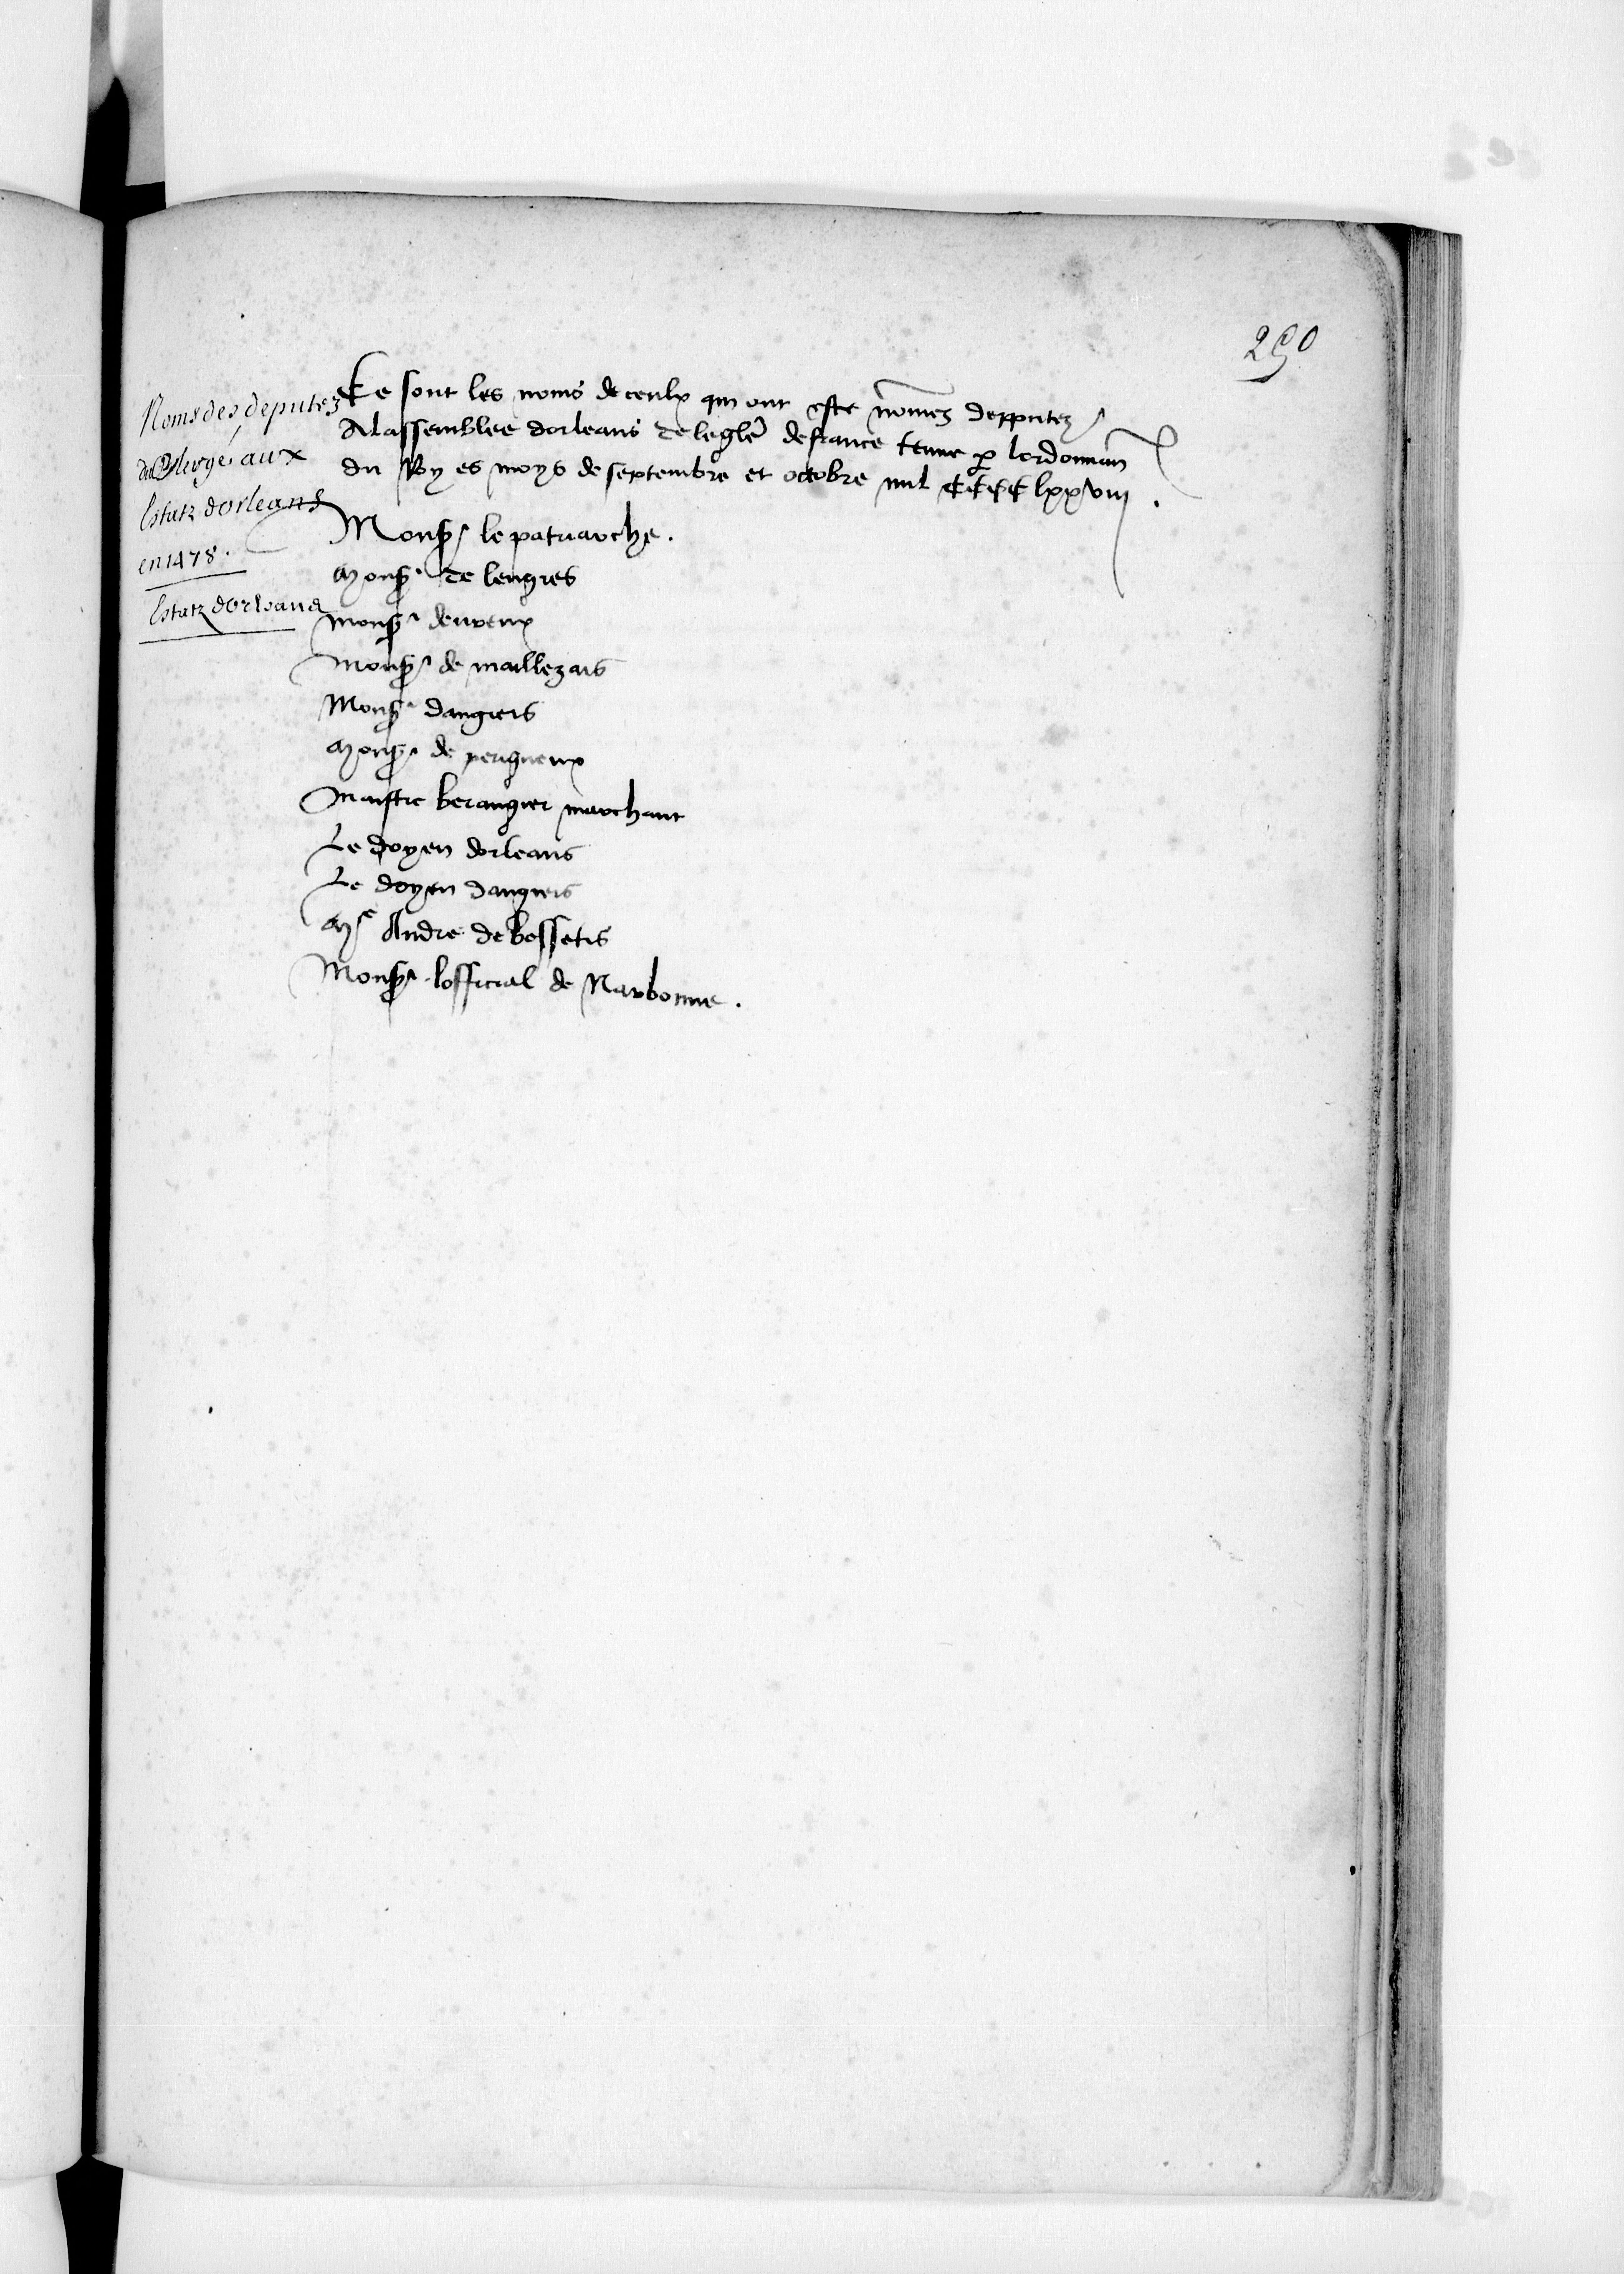 250
Noms des deputez
du Clergé aux
Estatz dorleans
en 1478.
Estatz dorleans
Ce sont les noms de ceulx qui ont este nõmez depputez
A lassemblee dorleans de leglẽ de france tenue p̱ lordonnan̄
du Roy es moys de septembre et octobre mil CCCC lxxviij.
Monsr le patriarche.
Monsr de lengres
Monsr deureux
Monsr de maillezais
Monsr dangiers
Monsr de perigueux
Maistre berangier marchant
Le doyen dorleans
Le doyen dangiers
Me Andre de bossetis
Monsr lofficial de Narbonne.